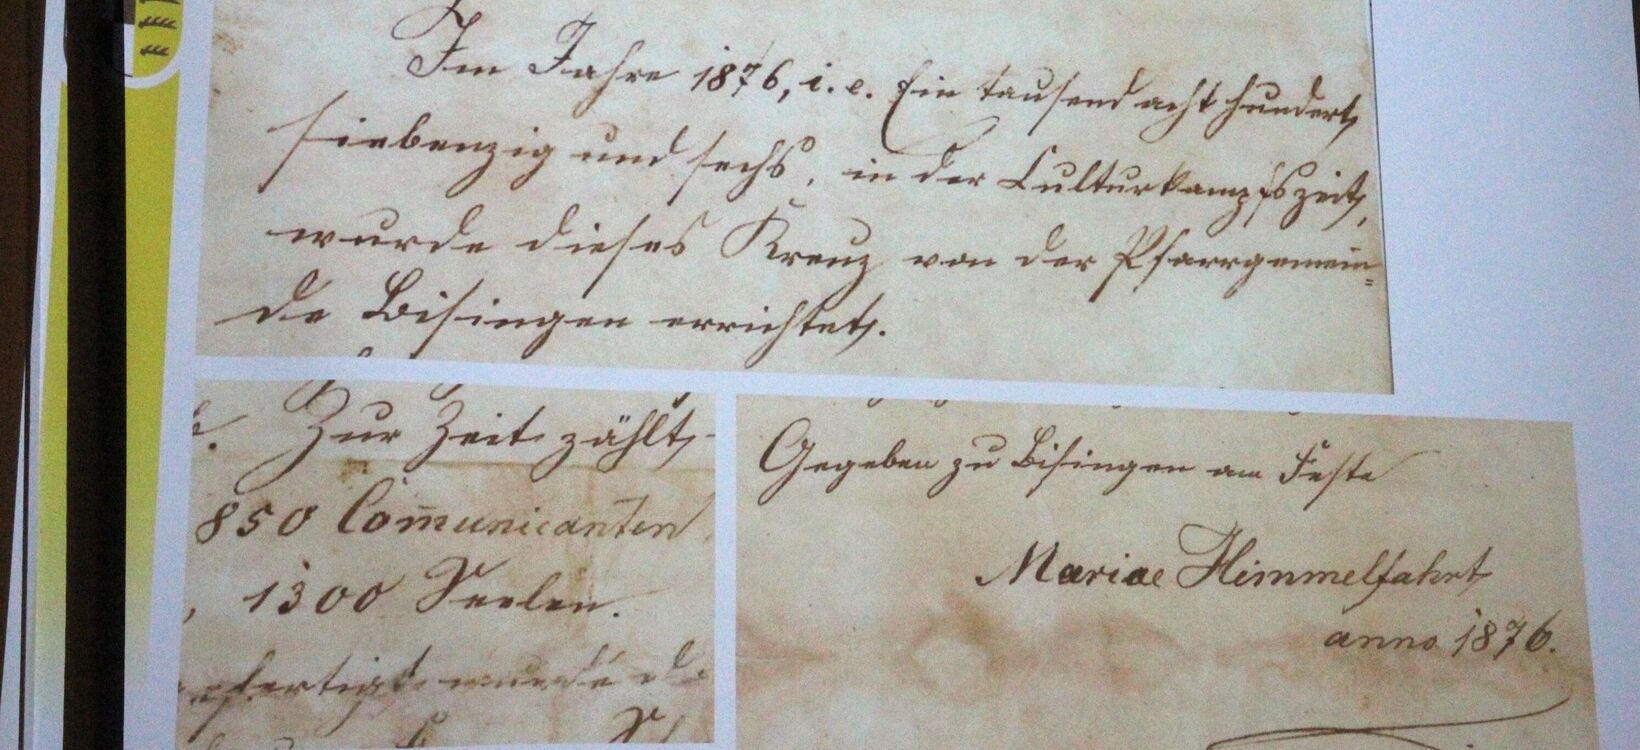 Im Jahre 1876, i. e. Ein tausend acht hundert
siebenzig und sechs, in der Culturkampfszeit,
wurde dieses Kreuz von der Pfarrgemein=
de Bisingen errichtet.
Zur Zeit zählt
850 Com̅unicanten
, 1300 Seelen.
gefertigt wurde d
Gegeben zu Bisingen am Feste
Mariae Himmelfahrt
anno 1876.